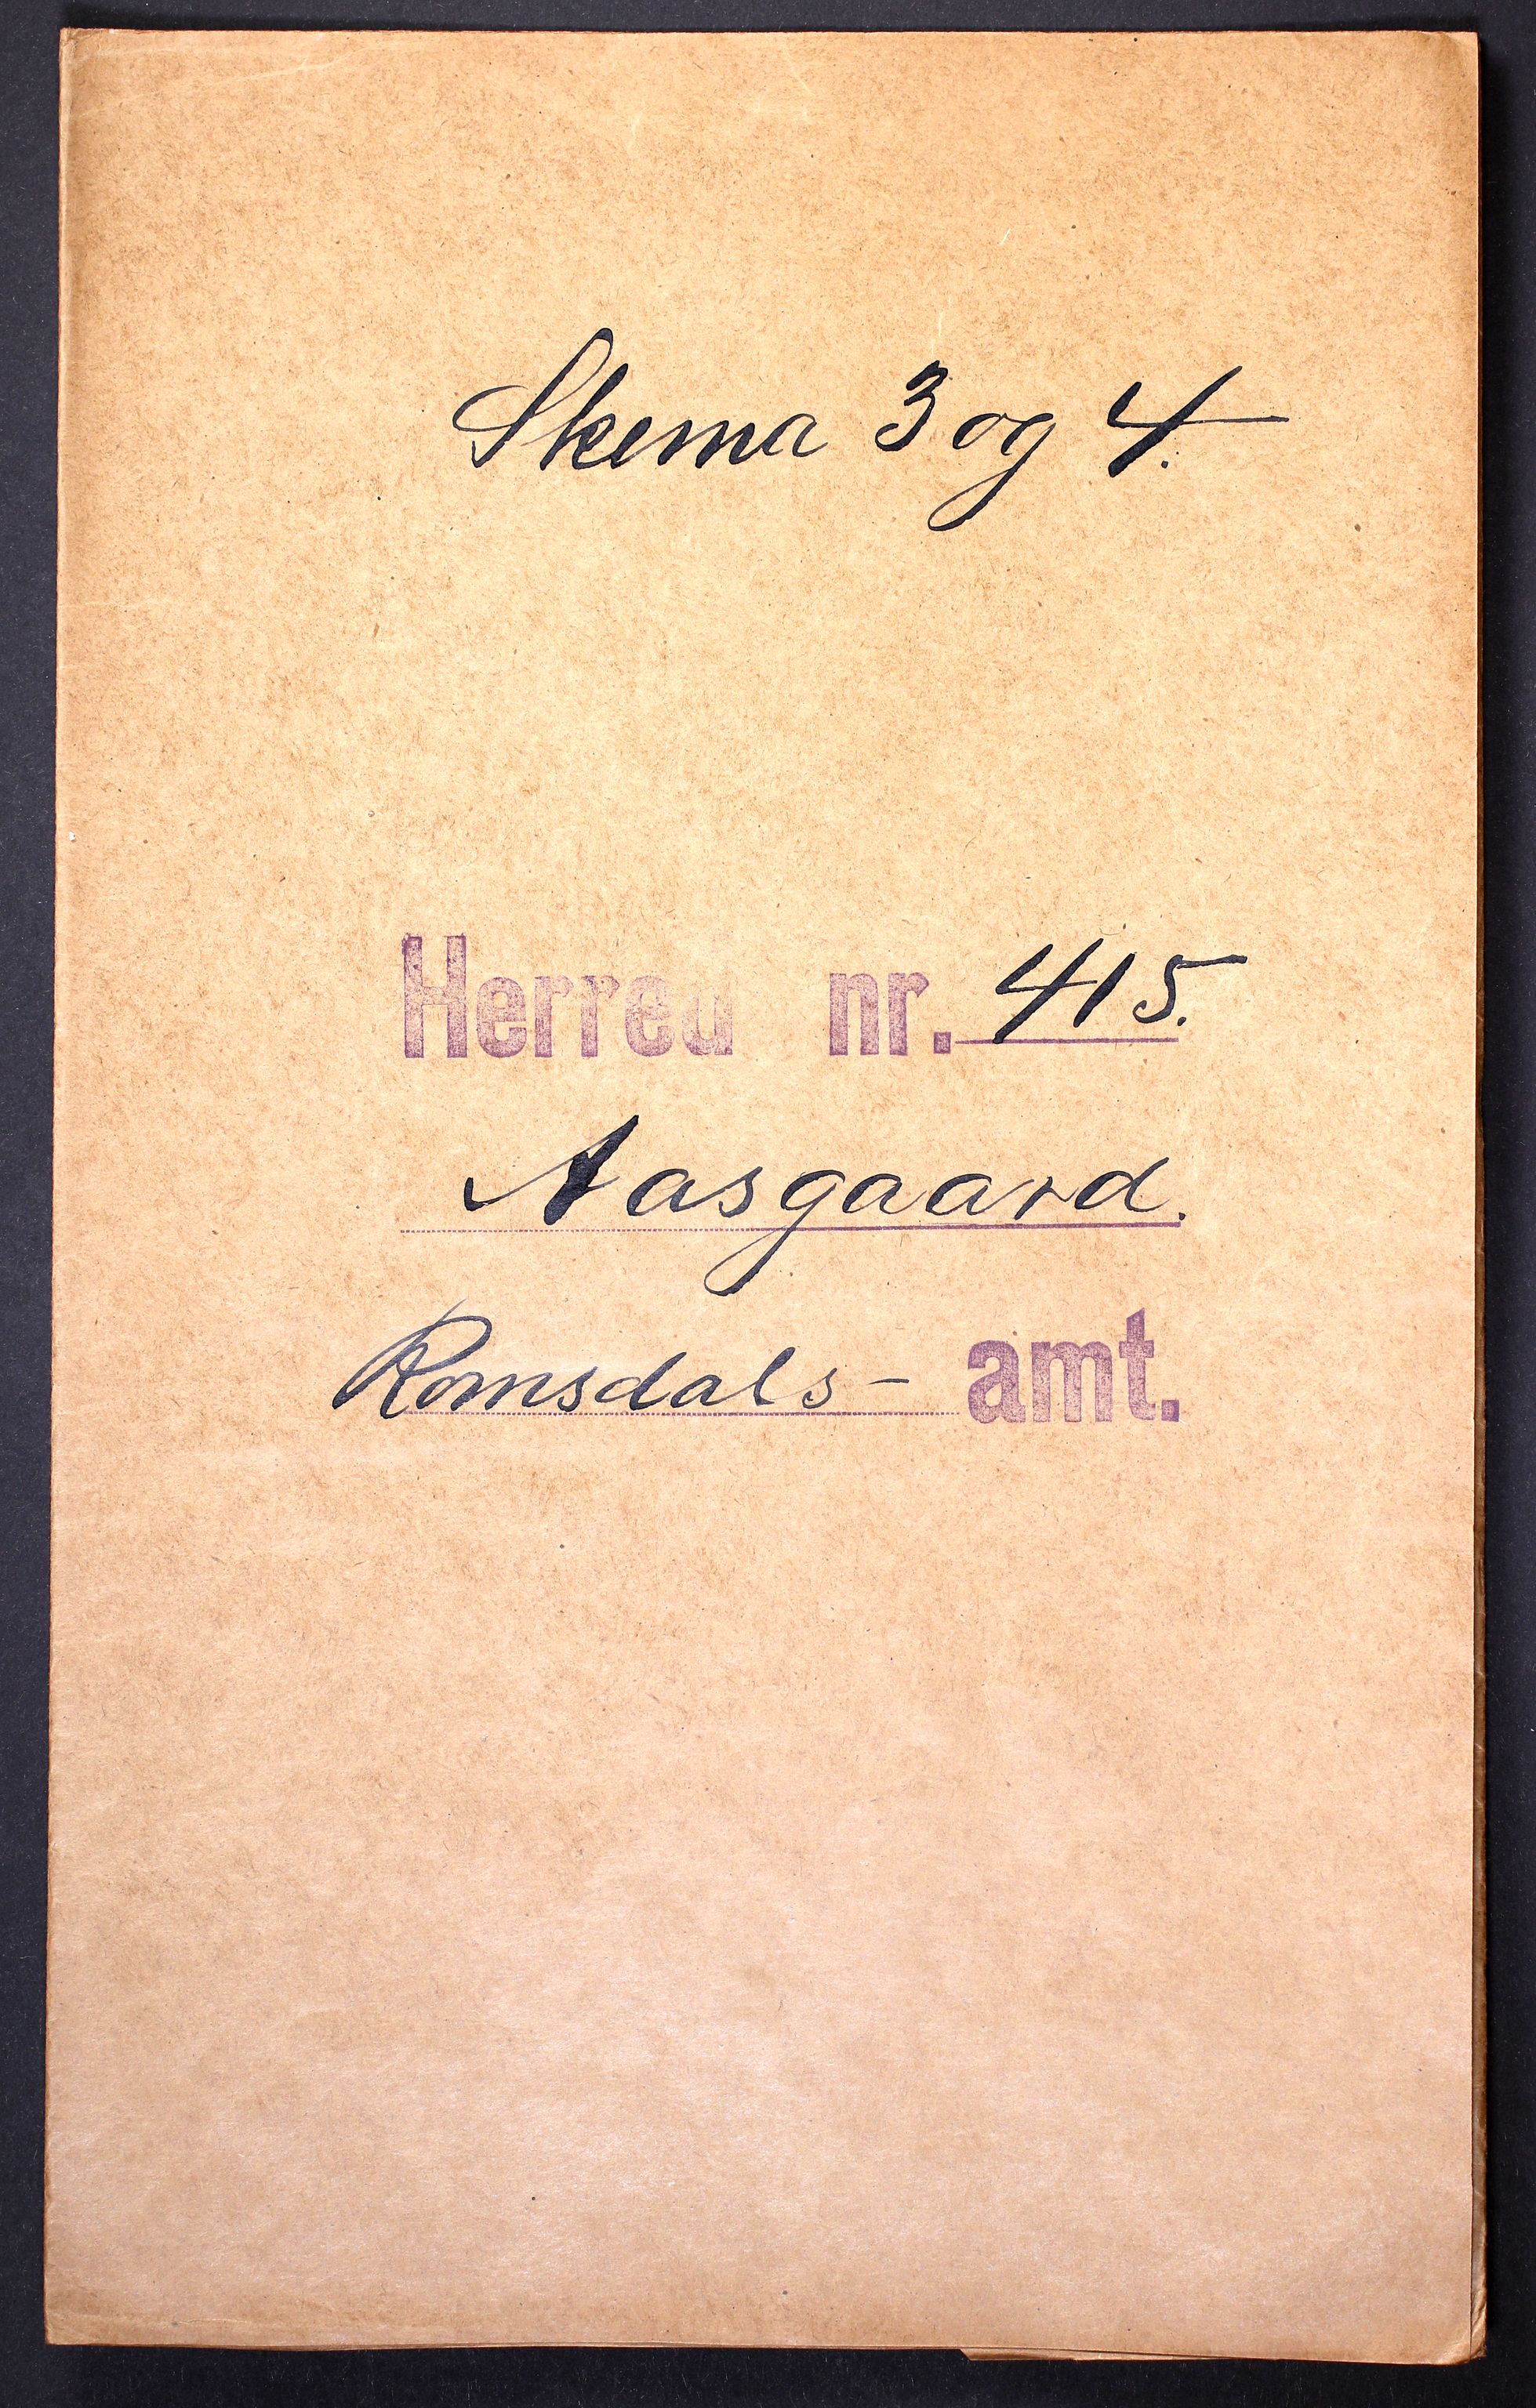 Skema 3 og 4.
Herred nr. 415.
Aasgaard.
Romsdals- amt.